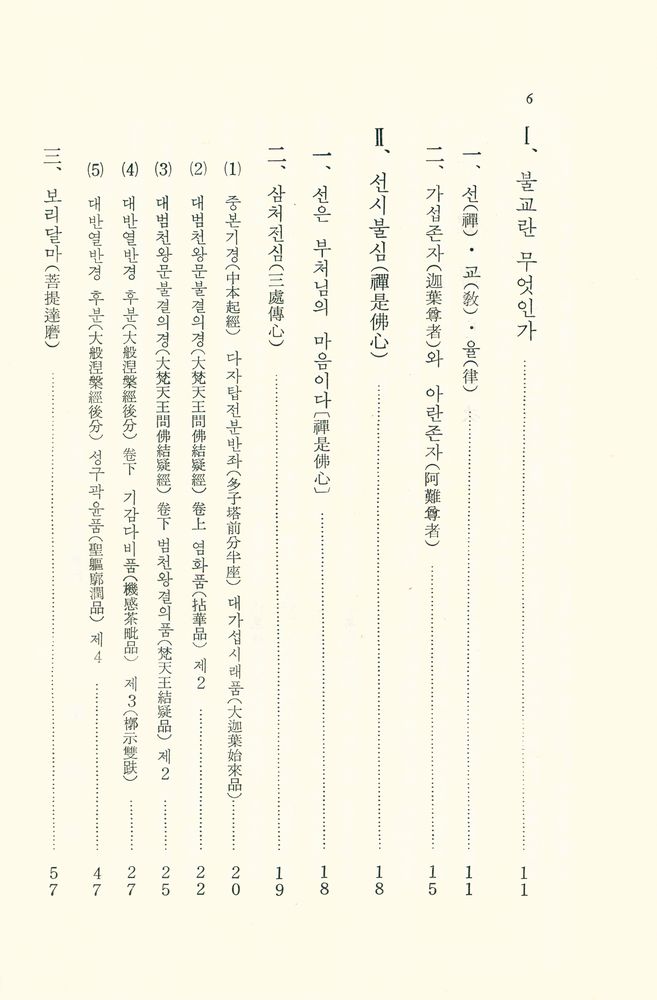 6
Ⅰ、 불교란 무엇인가 11
一、 선(禪)·교(敎)·율(律) 11
二、 가섭존자(迦葉尊者)와 아란존자(阿難尊者) 15
Ⅱ、 선시불심(禪是佛心) 18
一、 선은 부처님의 마음이다〔禪是佛心〕 18
二、 삼처전심(三處傳心) 19
(1) 중본기경(中本起經) 다자탑전분반좌(多子塔前分半座) 대가섭시래품(大迦葉始來品) 20
(2) 대범천왕문불결의경(大梵天王問佛結疑經) 卷上 염화품(拈華品) 제2 22
(3) 대범천왕문불결의경(大梵天王問佛結疑經) 卷下 범천왕결의품(梵天王結疑品) 제2 25
(4) 대반열반경 후분(大般涅槃經後分) 卷下 기감다비품(機感茶毗品) 제3(槨示雙趺) 27
(5) 대반열반경 후분(大般涅槃經後分) 성구곽윤품(聖軀廓潤品) 제4 47
三、 보리달마(菩提達磨) 57